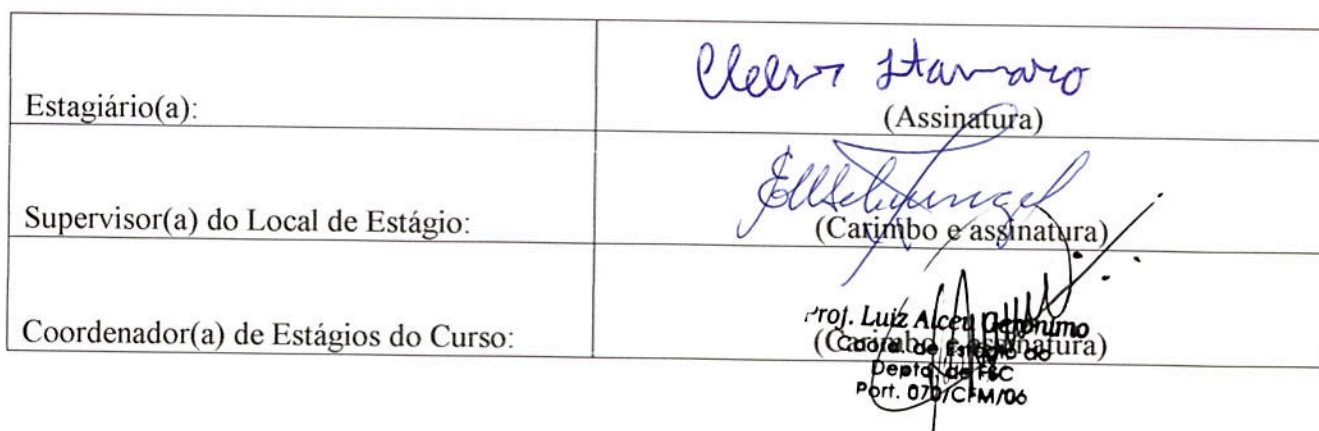 Estagiário(a):
(Assinatura)
Supervisor(a) do Local de Estágio:
(Carimbo e assinatura)
Coordenador(a) de Estágios do Curso:
Prof. Luiz Alceu Geronimo
(Carimbo e assinatura)
Coord. de Estágio do
Depto. de FSC
Port. 070/CFM/06